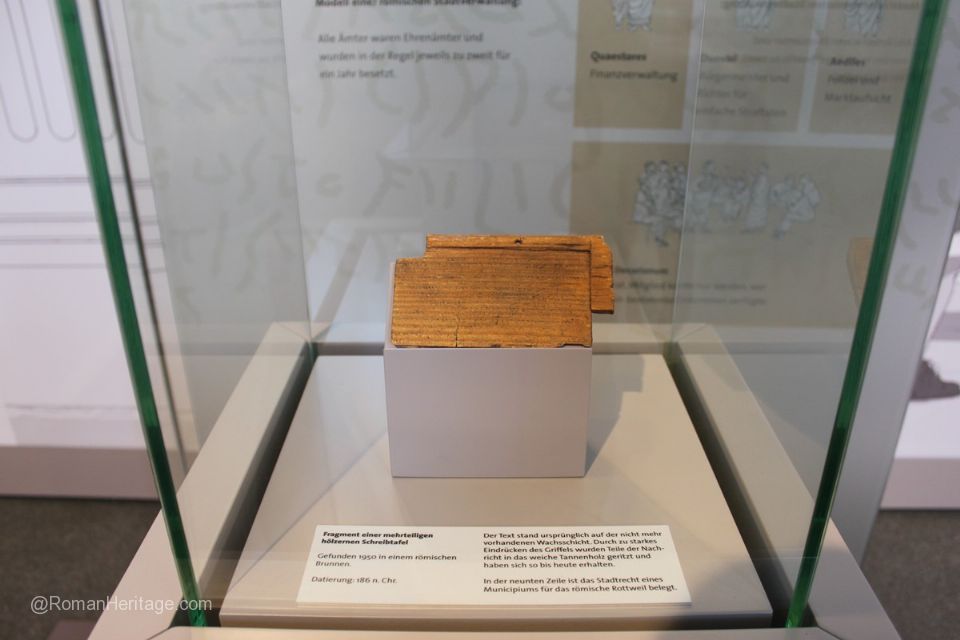 Modell einer römischen Stadtverwaltung:
Alle Ämter waren Ehrenämter und
wurden in der Regel jeweils zu zweit für
ein Jahr besetzt.
Quaestores
Finanzverwaltung
Aediles
Polizei und
Marktaufsicht
Fragment einer mehrteiligen
hölzernen Schreibtafel
Gefunden 1950 in einem römischen
Brunnen.
Datierung: 186 n. Chr.
Der Text stand ursprünglich auf der nicht mehr
vorhandenen Wachsschicht. Durch zu starkes
Eindrücken des Griffels wurden Teile der Nach-
richt in das weiche Tannenholz geritzt und
haben sich so bis heute erhalten.
In der neunten Zeile ist das Stadtrecht eines
Municipiums für das römische Rottweil belegt.
@RomanHeritage.com